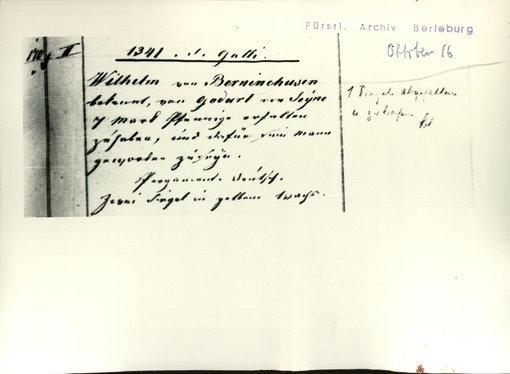 Fürstl. Archiv Berleburg
Oktober 86
II
1341. d. Galli.
Wilhelm von Berninchusen
bekennt, von Godart von Seyne
7 Mark Pfennige erhalten
zuhaben, und dafür sein Mann
geworden zuseyn.
Pergament. deutsch.
Zwei Siegel in gelbem Wachs.
1 Siegel abgefallen
u.